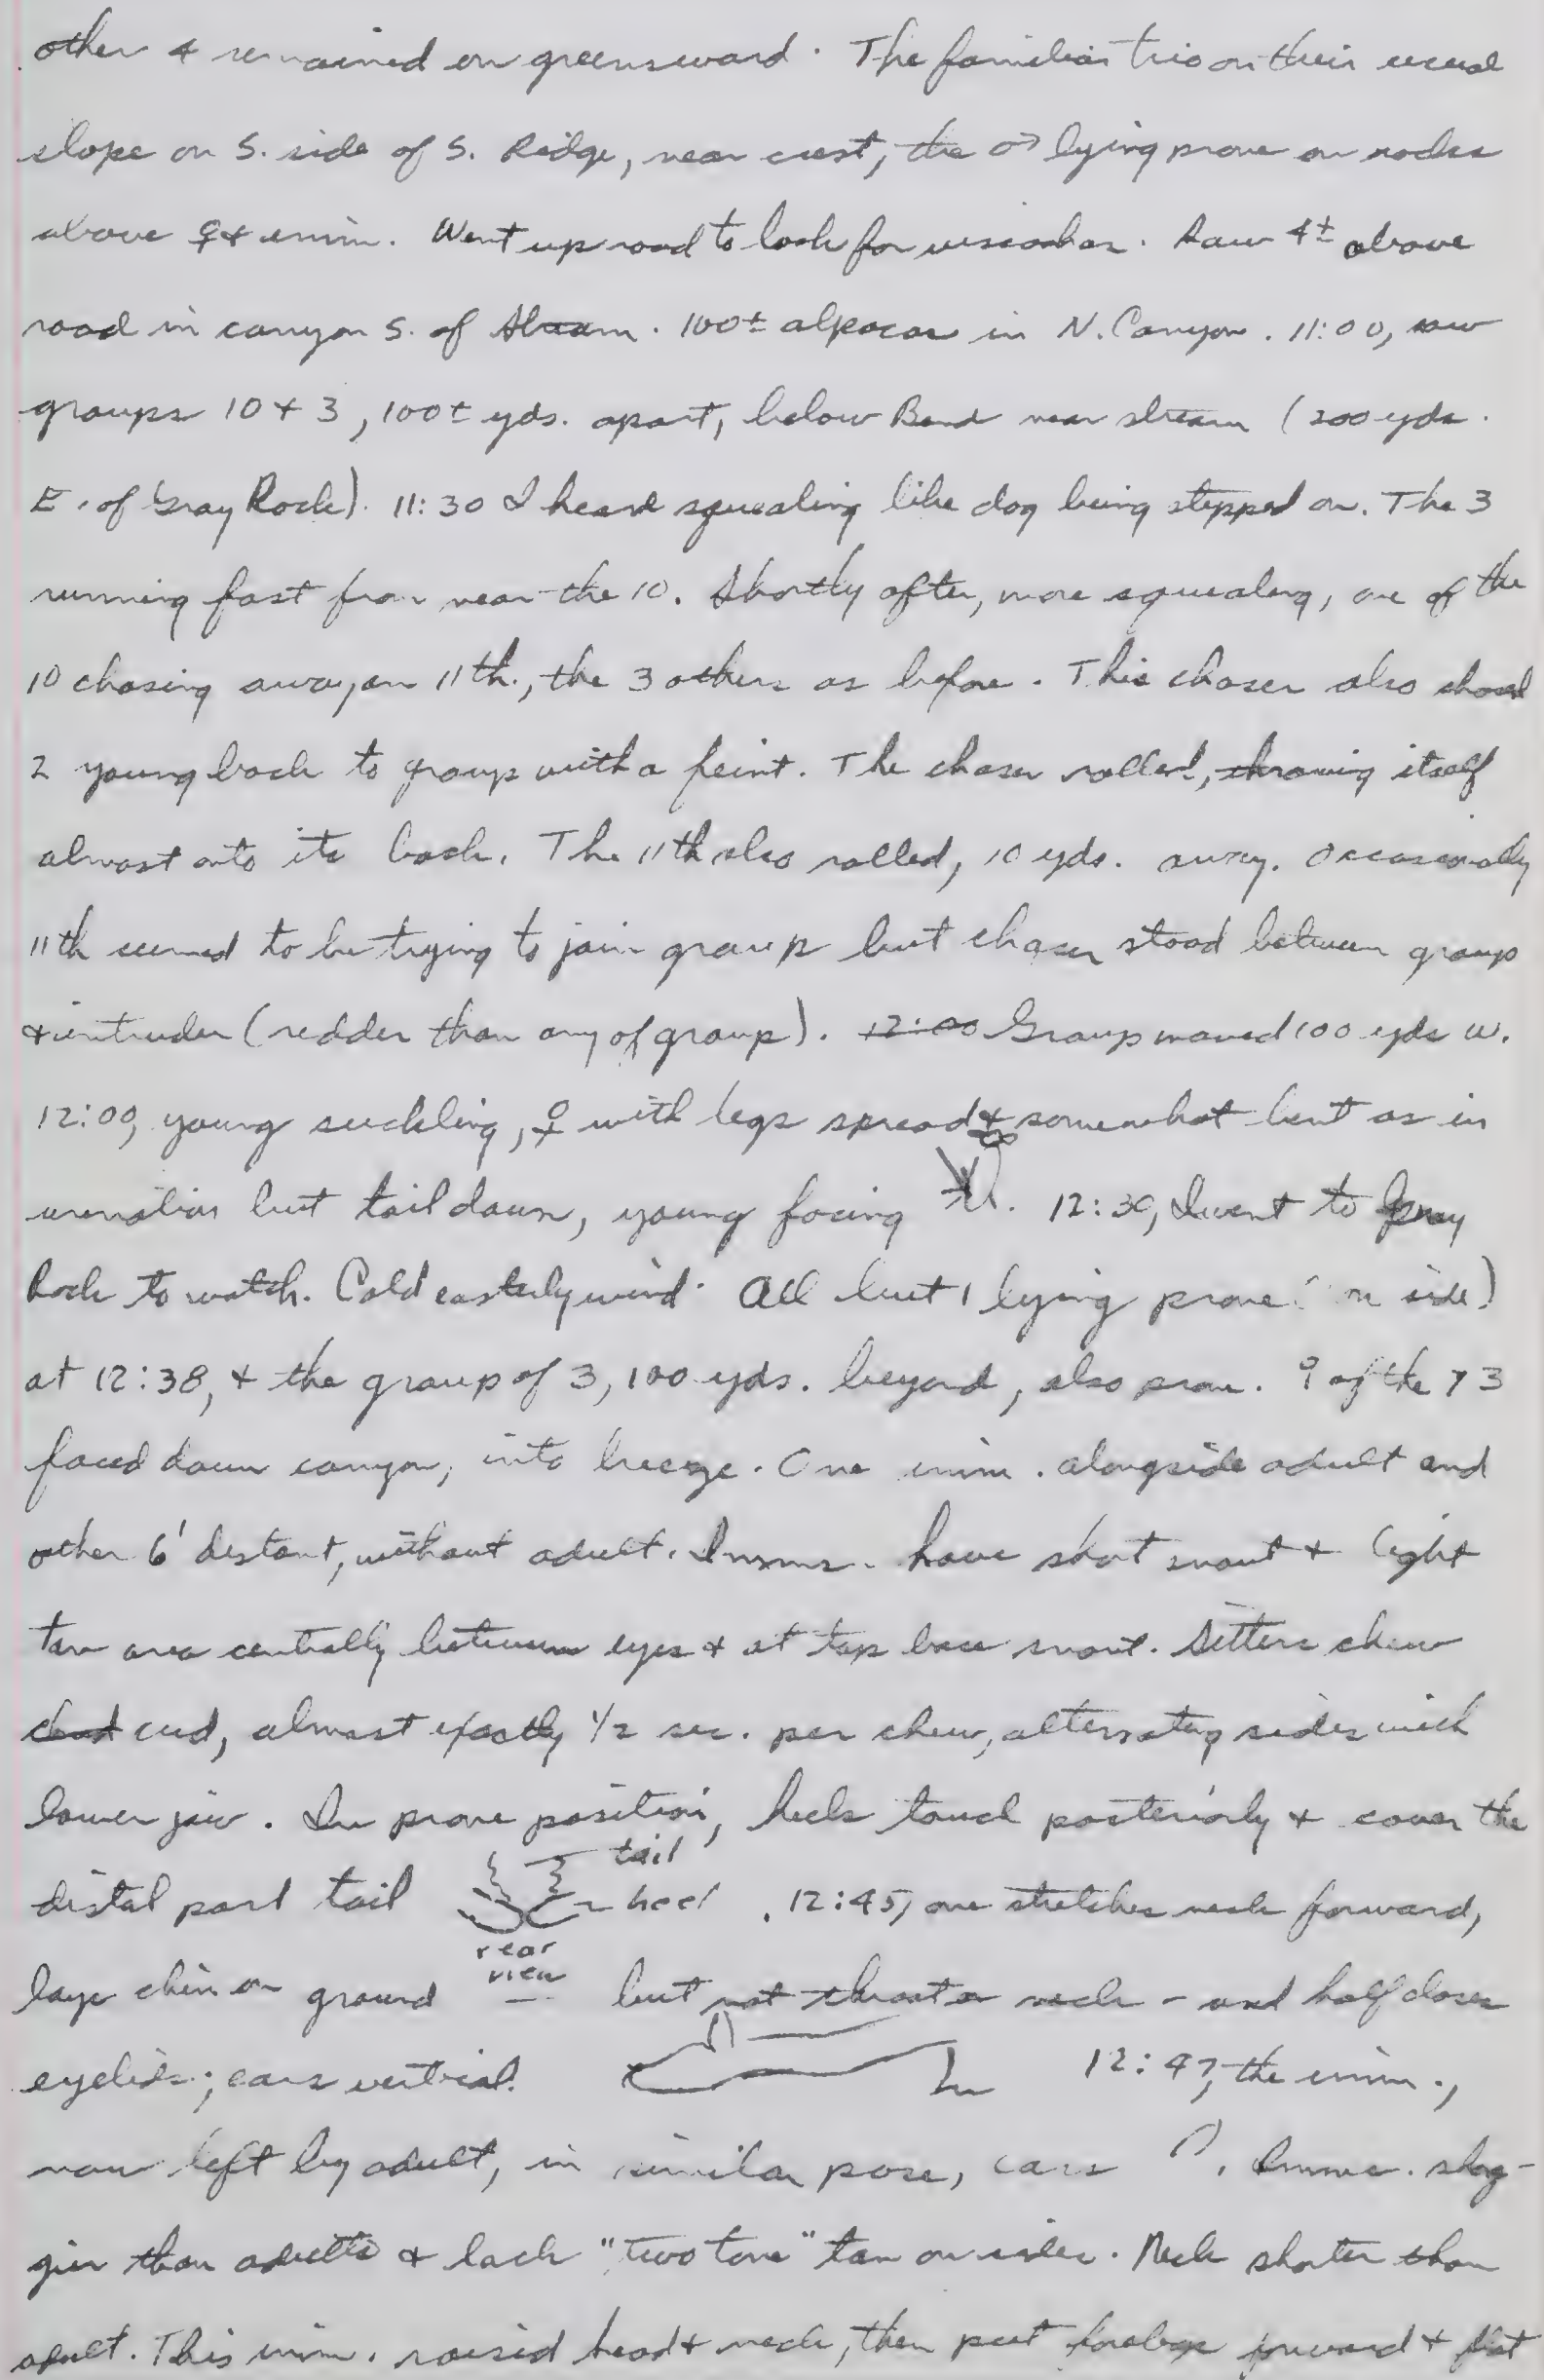 other 4 remained on greensward. The familiar trio on their usual
slope on S. side of S. Ridge, near crest, the ♂ lying prone on rocks
above ♀ & imm. Went up road to look for viscachas. Saw 4± above
road in canyon S. of stream. 100± alpacas in N. Canyon. 11:00, saw
groups 10 & 3, 100± yds. apart, below Bend near stream (200 yds.
E. of Gray Rock). 11:30 I heard squealing like dog being stepped on. The 3
running fast from near the 10. Shortly after, more squealing, one of the
10 chasing away an 11th, the 3 others as before. This chaser also chased
2 young back to group with a feint. The chaser rolled, throwing itself
almost onto its back. The 11th also rolled, 10 yds. away. Occasionally
11th seemed to be trying to join group but chaser stood between group
& intruder (redder than any of group). 12:00 Group moved 100 yds W.
12:00, young suckling, ♀ with legs spread & somewhat bent as in
urination but tail down, young facing. 12:30, I went to Gray
Rock to watch. Cold easterly wind. All but 1 lying prone (on side)
at 12:38, & the group of 3, 100 yds. beyond, also prone. 9 of the 13
faced down canyon, into breeze. One imm. alongside adult and
other 6' distant, without adult. Imms. have short snout & light
tan area centrally between eyes & at top base snout. Sitters chew
cud, almost exactly 1/2 sec. per chew, alternating sides with
lower jaw. In prone position, heels touch posteriorly & cover the
tail
distal part tail heel. 12:45, one stretches neck forward,
rear
view
lays chin on ground but not throat or neck - and half closes
eyelids; ears vertical. 12:47, the imm.,
now left by adult, in similar pose, ears. Imms. shag-
gier than adults & lack "two tone" tan on sides. Neck shorter than
adult. This imm. raised head & neck, then put forelegs forward & flat